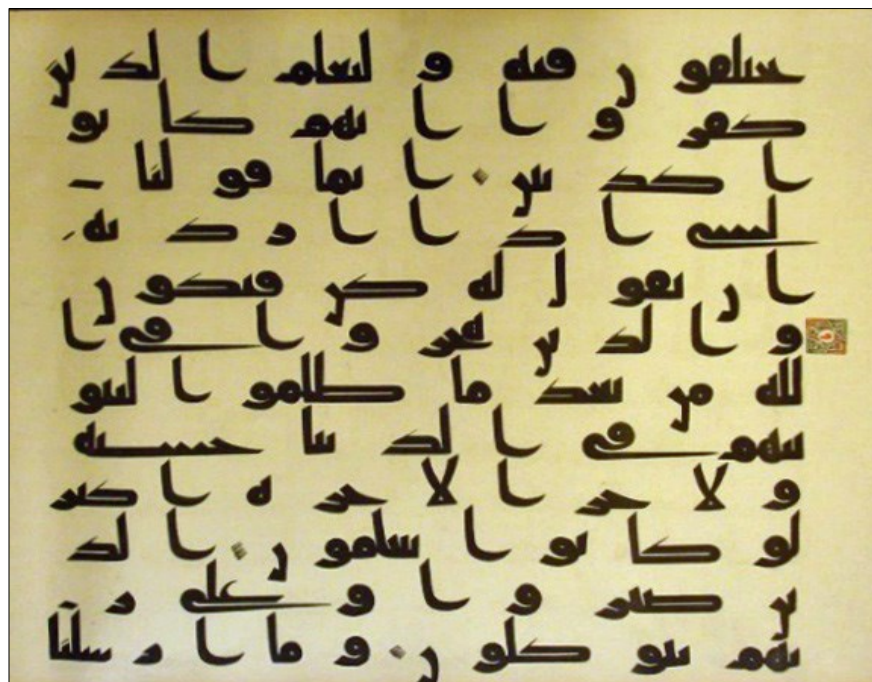 يختلفون فيه وليعلم الذين
كفروا انهم كانو
ا كذبين انما قولنا
لشى اذا اردنه
ان نقول له كن فيكون
والذين هجروا فى ا
لله من بعد ما ظلموا لنبو
ينهم فى الدنيا حسنه
ولاجر الاخره اكبر
لو كانوا يعلمون الذ
ين صبروا وعلى ر
بهم يتوكلون وما ارسلنا